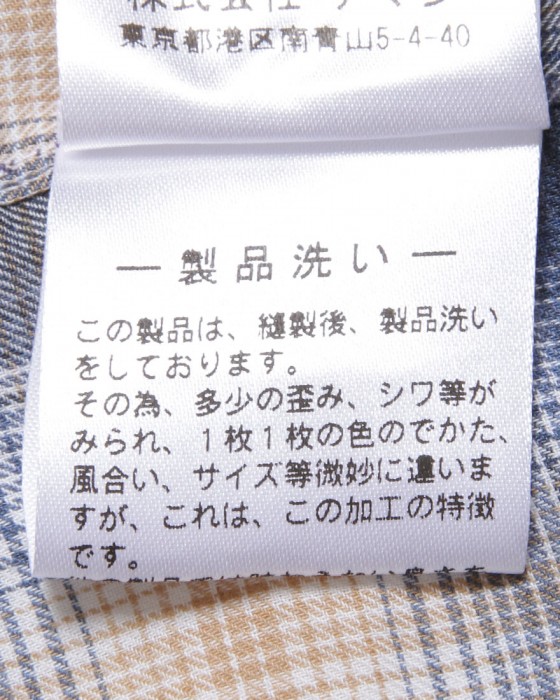 株式会社
東京都港区南青山5-4-40
― 製品洗い ―
この製品は、縫製後、製品洗い
をしております。
その為、多少の歪み、シワ等が
みられ、1枚1枚の色のでかた、
風合い、サイズ等微妙に違いま
すが、これは、この加工の特徴
です。